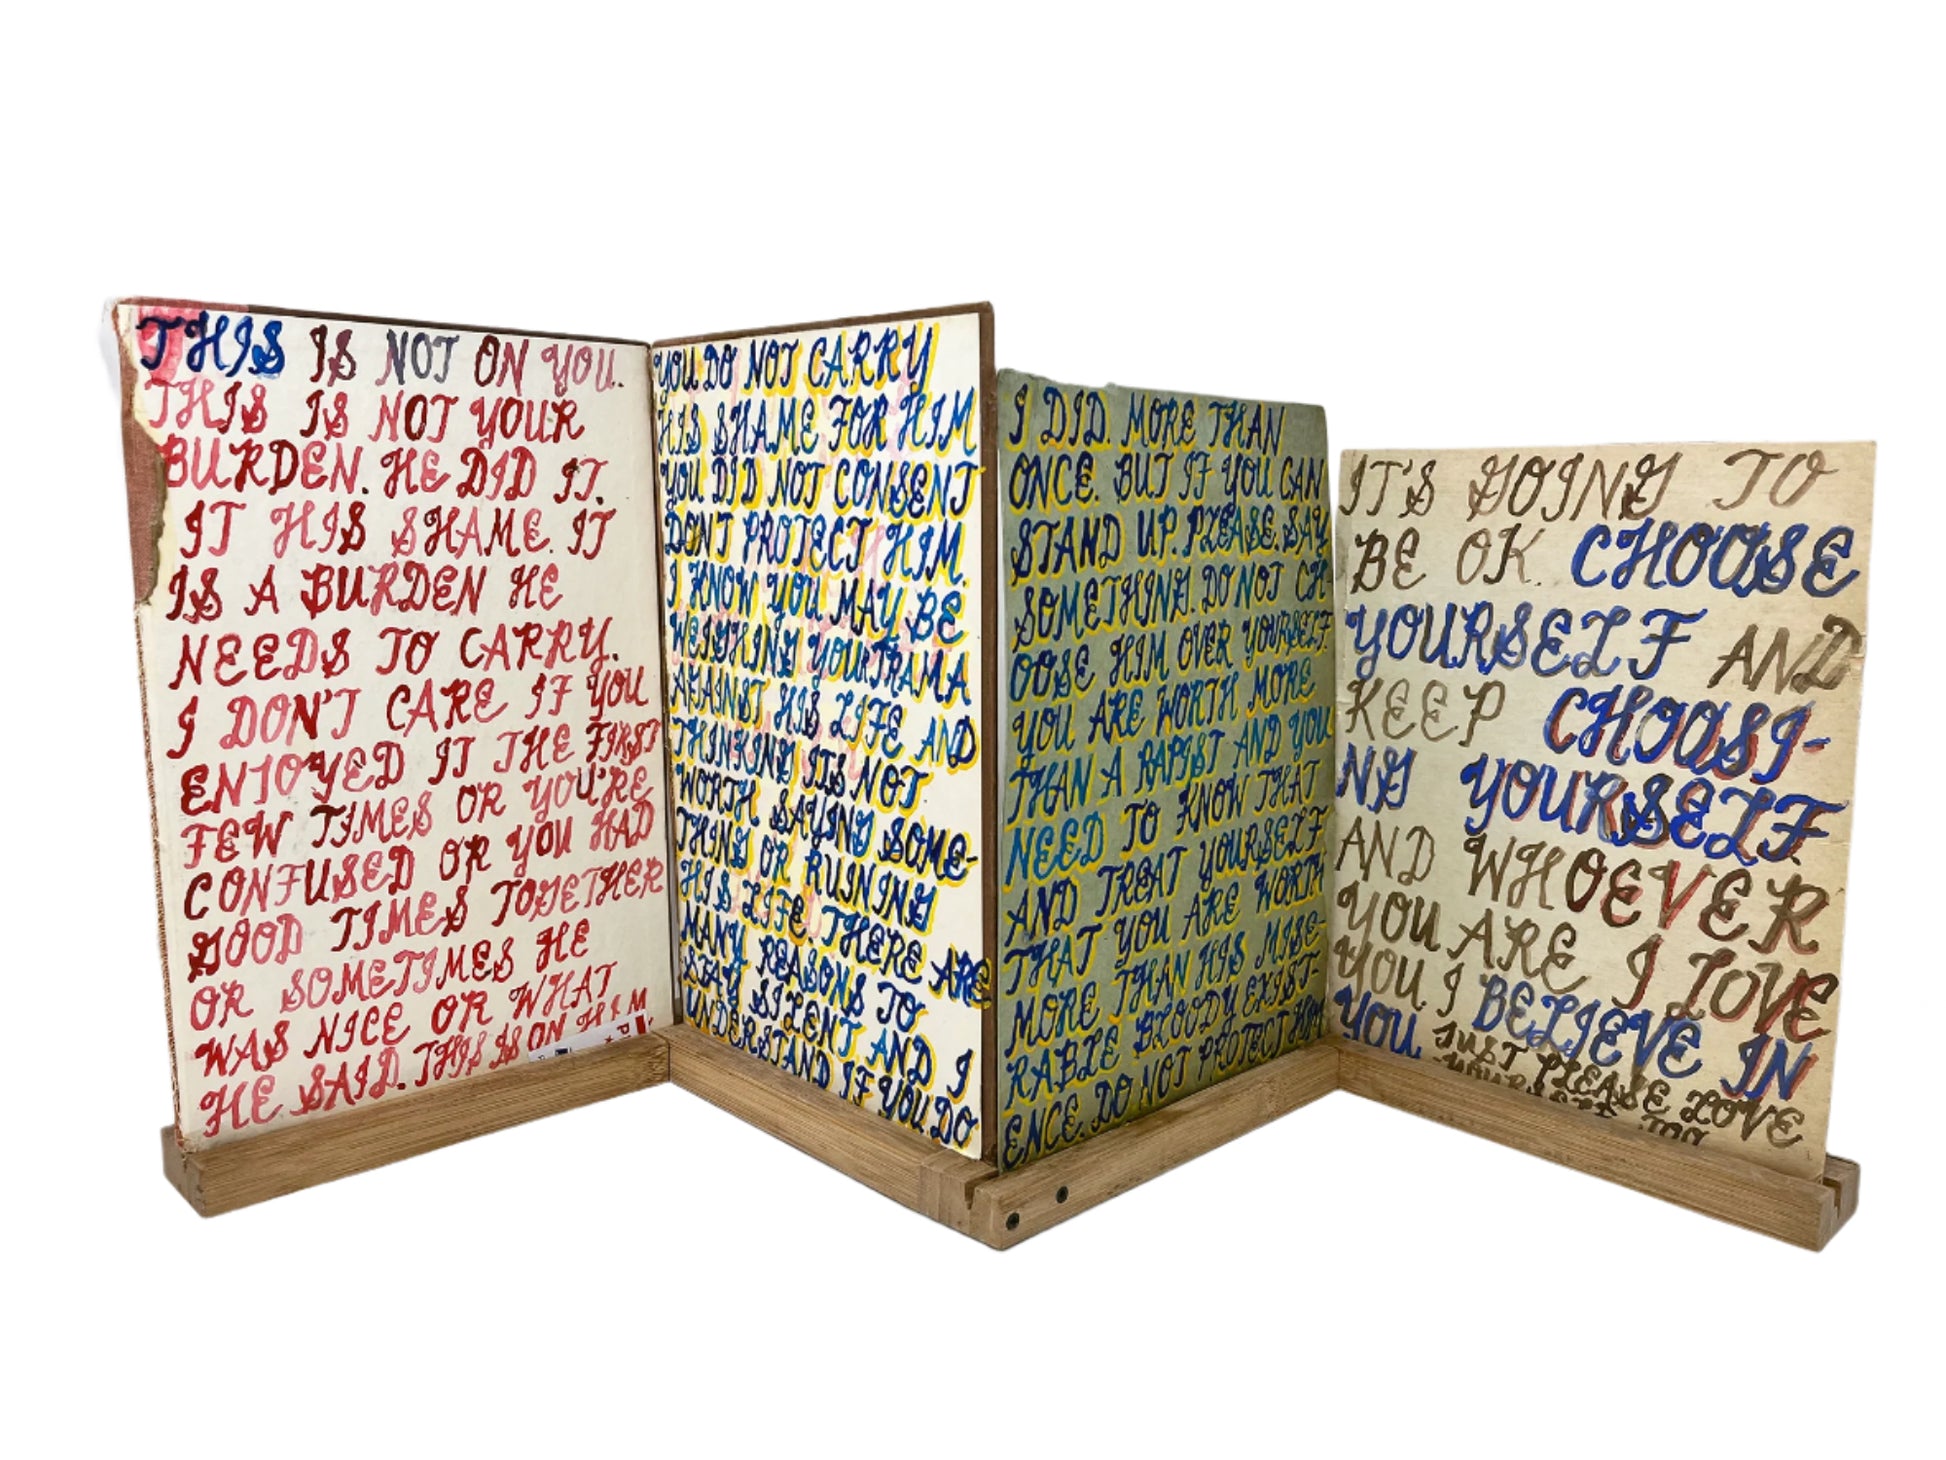 THIS IS NOT ON YOU.
THIS IS NOT YOUR
BURDEN. HE DID IT.
IT HIS SHAME. IT
IS A BURDEN HE
NEEDS TO CARRY.
I DON'T CARE IF YOU
ENJOYED IT THE FIRST
FEW TIMES OR YOU'RE
CONFUSED OR YOU HAD
GOOD TIMES TOGETHER
OR SOMETIMES HE
WAS NICE OR WHAT
HE SAID. THIS IS ON HIM
YOU DO NOT CARRY
HIS SHAME FOR HIM
YOU DID NOT CONSENT
DONT PROTECT HIM.
I KNOW YOU MAY BE
WEIGHING YOUR TRAMA
AGAINST HIS LIFE AND
THINKING ITS NOT
WORTH SAYING SOME-
THING OR RUINING
HIS LIFE. THERE ARE
MANY REASONS TO
STAY SILENT AND I
UNDERSTAND IF YOU DO
I DID. MORE THAN
ONCE. BUT IF YOU CAN
STAND UP. PLEASE. SAY
SOMETHING. DO NOT CH-
OOSE HIM OVER YOURSELF.
YOU ARE WORTH MORE
THAN A RAPIST AND YOU
NEED TO KNOW THAT
AND TREAT YOURSELF
THAT YOU ARE WORTH
MORE THAN HIS MISE-
RABLE BLOODY EXIST-
ENCE. DO NOT PROTECT HIM
IT'S GOING TO
BE OK. CHOOSE
YOURSELF AND
KEEP CHOOSI-
NG YOURSELF.
AND WHOEVER
YOU ARE I LOVE
YOU. I BELIEVE IN
YOU. JUST PLEASE LOVE
YOURSELF TOO